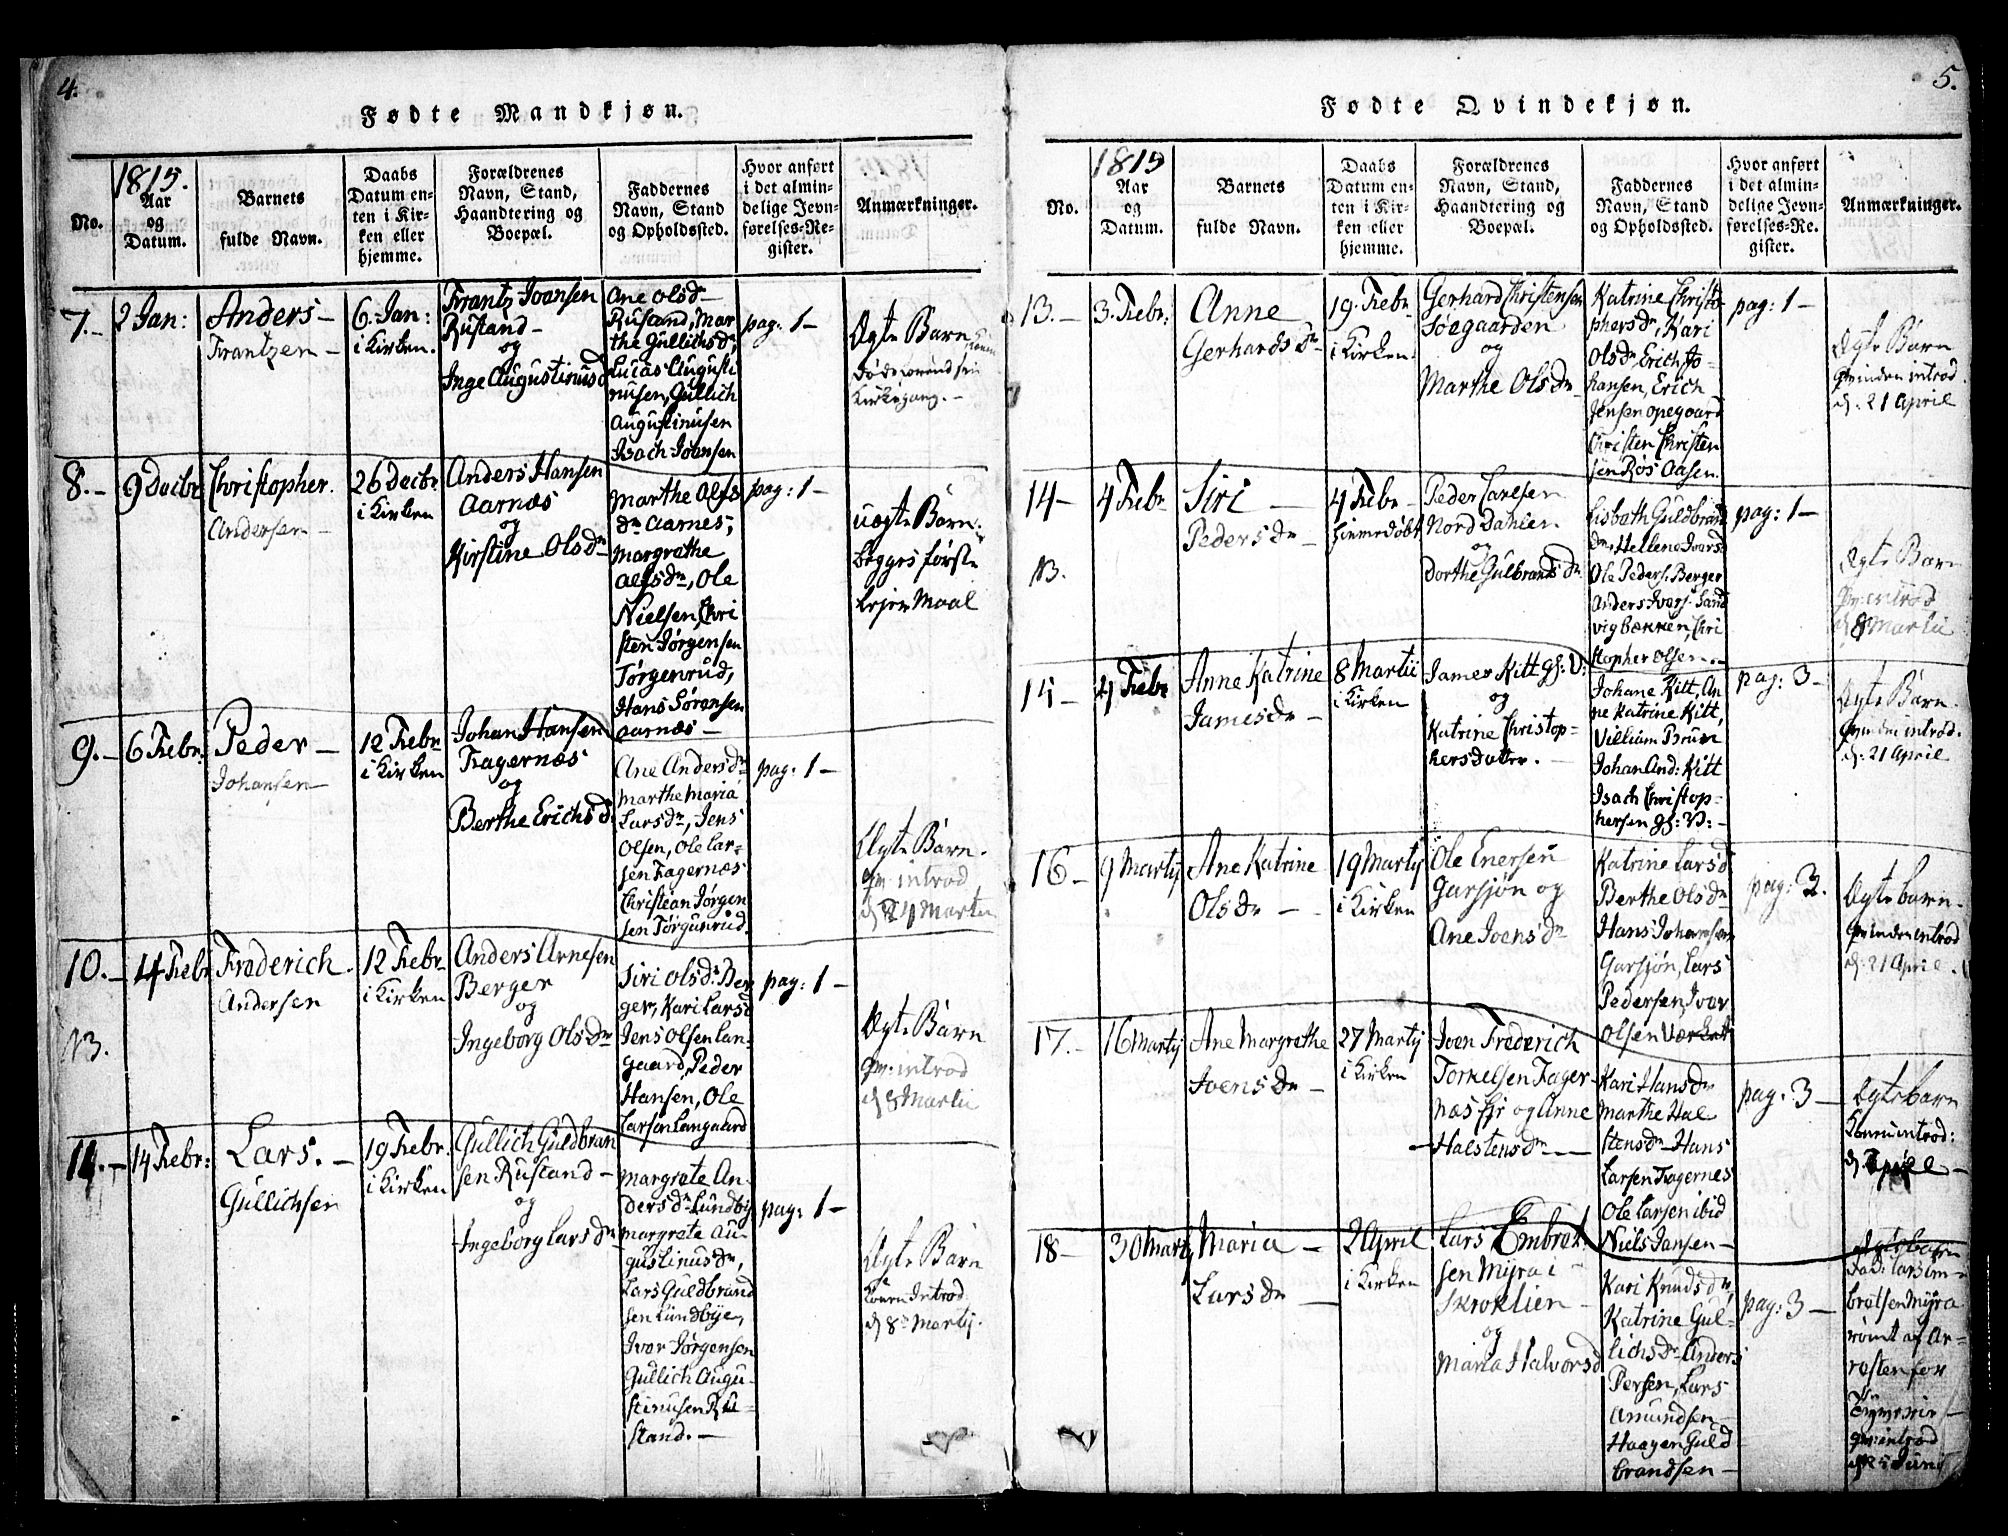 4.
Fødte Mandkjøn.
No.
1815.
Aar
og
Datum.
Barnets
fulde Navn.
Daabs
Datum en-
ten i Kir-
ken eller
hjemme.
Forældrenes
Navn, Stand,
Haandtering og
Boepæl.
Faddernes
Navn, Stand
og Opholdssted.
Hvor anført
i det almin-
delige Jevn-
førelses-Re-
gister.
Anmærkninger.
7.-
2 Jan:
Anders-
Frantzen-
6. Jan:
i Kirken.
Frantz Joansen
Rustand-
og
Inge Augustinusd
Ane Olsd-
Rustand, Mar
the Gullichsdr,
Lucas Augusti
nusen, Gullich
Augustinusen
Isach Joansen
pag: 1-
Ægte Barn
Kirkegang.-
8.-
9 Decbr
Christopher.
Andersen-
26 Decbr.
i Kirken
Anders Hansen
Aarnæs
og
Kirstine Olsdr
Marthe Alfs
dr Aarnes,
Margrethe
Alfsdr, Ole
Nielsen, Chri
sten Jørgensen
Tørgenrud,
Hans Sørensen
Aarnæs-
pag: 1-
uægte Barn.
begges første
Lejer Maal
9.-
6 Febr.
Peder-
Johansen
12 Febr
i Kirken
Johan Hansen
Fagernæs
og
Berthe Erichsd.
Ane Andersdr
Marthe Maria
Larsdr, Jens
Olsen, Ole Lar-
sen Fagernæs
Christean Jørgen
sen Tørgunrud.
pag: 1-
Ægte Barn.
Qv: introd
d 24 Martii
10.-
4 Febr
NB.
Frederich.
Andersen
12 Febr.
i Kirken
Anders Arnesen
Berger
og
Ingeborg Olsdr
Siri Olsdr Ber
ger, Kari Larsd
Jens Olsen Lan-
gaard, Peder
Hansen, Ole
Larsen Langaard
pag: 1-
Ægte Barn
Qv: introd
d 8 Martii
11.-
14 Febr:
Lars.-
Gullichsen
19 Febr.
i Kirken
Gullich Guldbran
sen Rustand-
og
Ingeborg Larsdr
Margrete An-
dersdr Lundby
Margrete Au-
gustinusdr,
Lars Guldbrand
sen Lundbye,
Ivar Jørgensen
Gullich Augu-
stinusen Ru-
stand.-
pag: 1-
Ægte Barn
Konen Introd
d 8de Martij.
5.
Fødte Qvindekjøn.
No.
1815
Aar
og
Datum.
Barnets
fulde Navn.
Daabs
Datum en-
ten i Kir-
ken eller
hjemme.
Forældrenes
Navn, Stand,
Haandtering og
Boepæl.
Faddernes
Navn, Stand
og Opholdssted.
Hvor anført
i det almin-
delige Jevn-
førelses-Re-
gister.
Anmærkninger.
13.-
3. Febr:
Anne
Gerhardsdr-
19. Febr
i Kirken
Gerhard Christensen
Søegaarden
og
Marthe Olsdr
Katrine Christo-
phersdr, Kari
Olsdr, Erich Jo-
hansen, Erich
Jensen Opegaard
Christen Christen
sen Røs Aasen.
pag: 1-
Ægte Barn
Qvinden introd.
d: 21 April
14-
NB.
4 Febr
Siri-
Pedersdr-
4 Febr-
hiemedøbt
Peder Carlsen
Nord Dahlen
og
Dorthe Gulbrandsdr
Lisbath Guldbrand
dr, Hellene Ivarsd
Ole Peders. Berger
Anders Ivars. Sand
vigbækken, Chri
stopher Olsen.-
pag: 1-
Ægte Barn
Qv: introd
d 8 Martii
15-
4 Febr
Anne Katrine
Jamesdr-
8 Martii
i Kirken
James Kitt gs: V:
og
Katrine Christop-
hersdatter.-
Johane Kitt, An
ne Katrine Kitt,
Villium Brun
Johan And: Kitt
Isach Christop-
hersen gs: V:-
pag: 3-
Ægte Barn
Qvinden introd.
d: 21 April
16-
9 Martij
Ane Katrine
Olsdr-
19 Martij
i Kirken
Ole Enersen
Garsjøn og
Ane Joensdr
Katrine Larsd
Berthe Olsdr
Hans Johannesen
Garsjøn, Lars
Pedersen, Ivar
Olsen
pag: 3.
Ægte barn.
Qvinden introd
d: 21 April.
17.-
16 Martij
Ane Margrethe
Joensdr-
27 Martij
i Kirken
Joen Frederich
Torkelsen Fager-
næs Ejr og Anne
-Halstensdr-
Kari Hansdr
Marthe Hal
stensdr Hans
Larsen Fagernes
Ole Larsen ibid
Niels Jansen-
pag: 3-
Ægte barn
Konen introd:
18-
30 Martij
Maria-
Larsdr-
2 April
i Kirken
Lars Embret-
sen Myra i
Skroklien-
og
Maria Halvorsd
Kari Knudsdr,
Katrine Gul-
lichsdr Anders
Persen, Lars
Amundsen-
Haagen Guld-
brandsen-
pag: 3-
Ægte barn
Fad: Lars Em-
bretsen Myra
rømt af Ar-
resten for
Tyverie-
Qv: introd